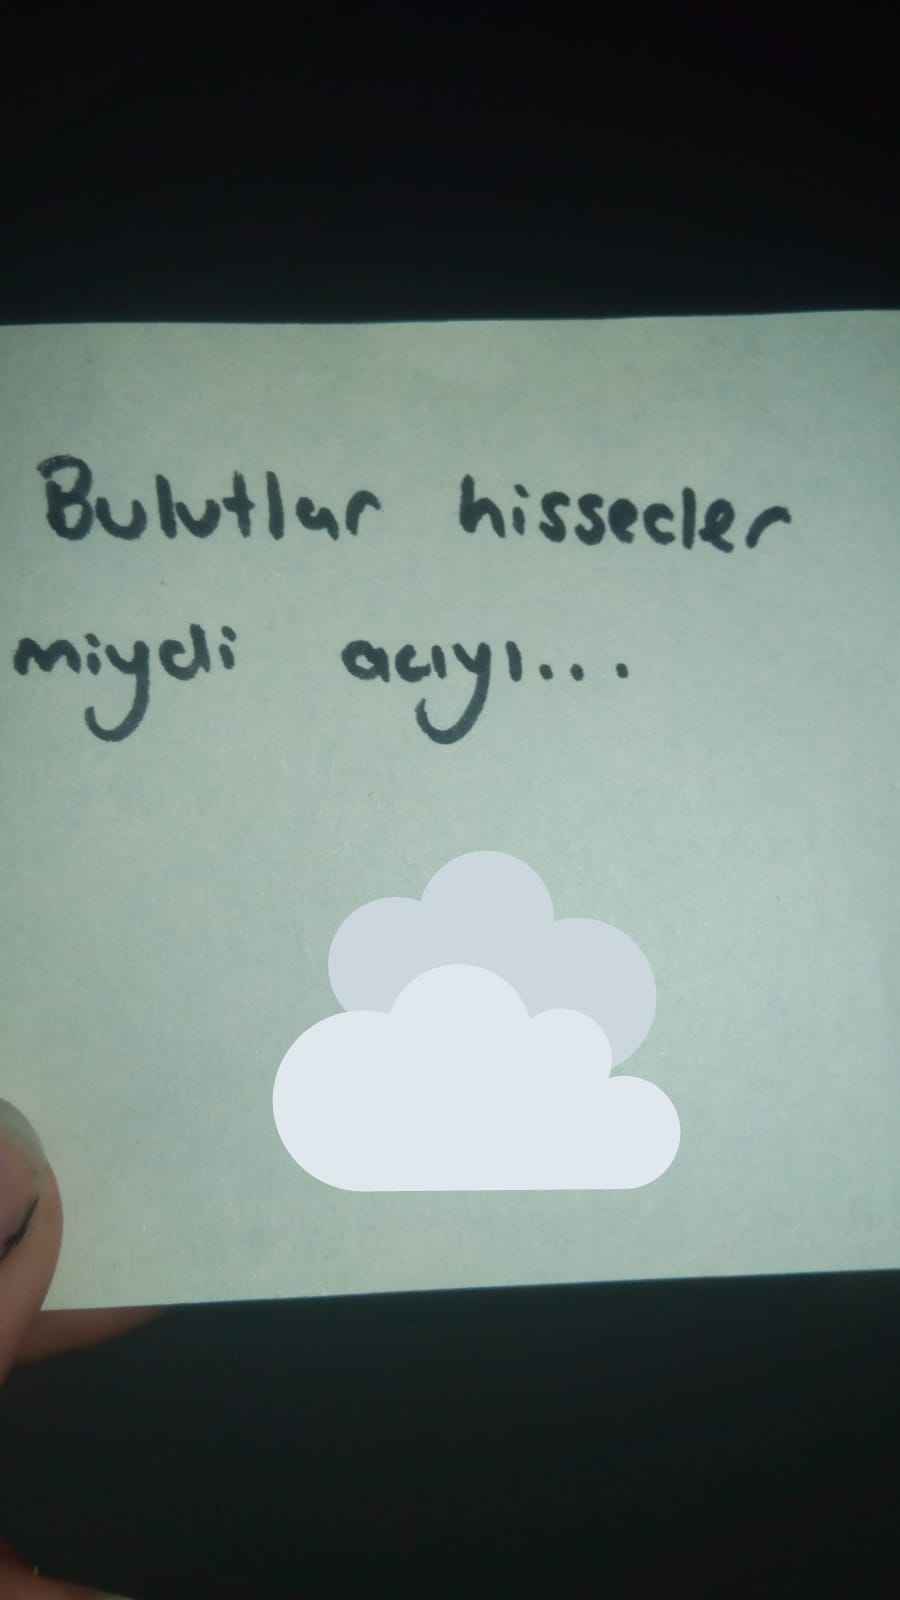 Bulutlar hisseder
miydi acıyı...